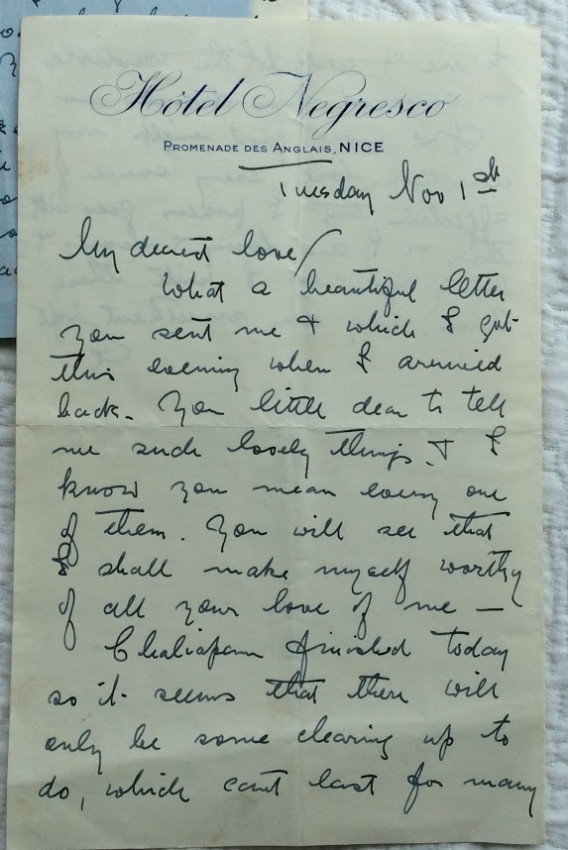 Hôtel Negresco
PROMENADE DES ANGLAIS, NICE
Tuesday Nov 1st
My dearest love/
What a beautiful letter
you sent me & which I got
this evening when I arrived
back. You little dear to tell
me such lovely things. & I
know you mean every one
of them. You will see that
I shall make myself worthy
of all your love of me —
Chaliapine finished today
so it seems that there will
only be some clearing up to
do, which cant last for many